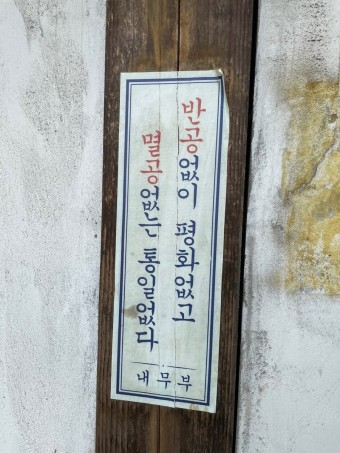 반공없이 평화없고
멸공없는 통일없다
내무부